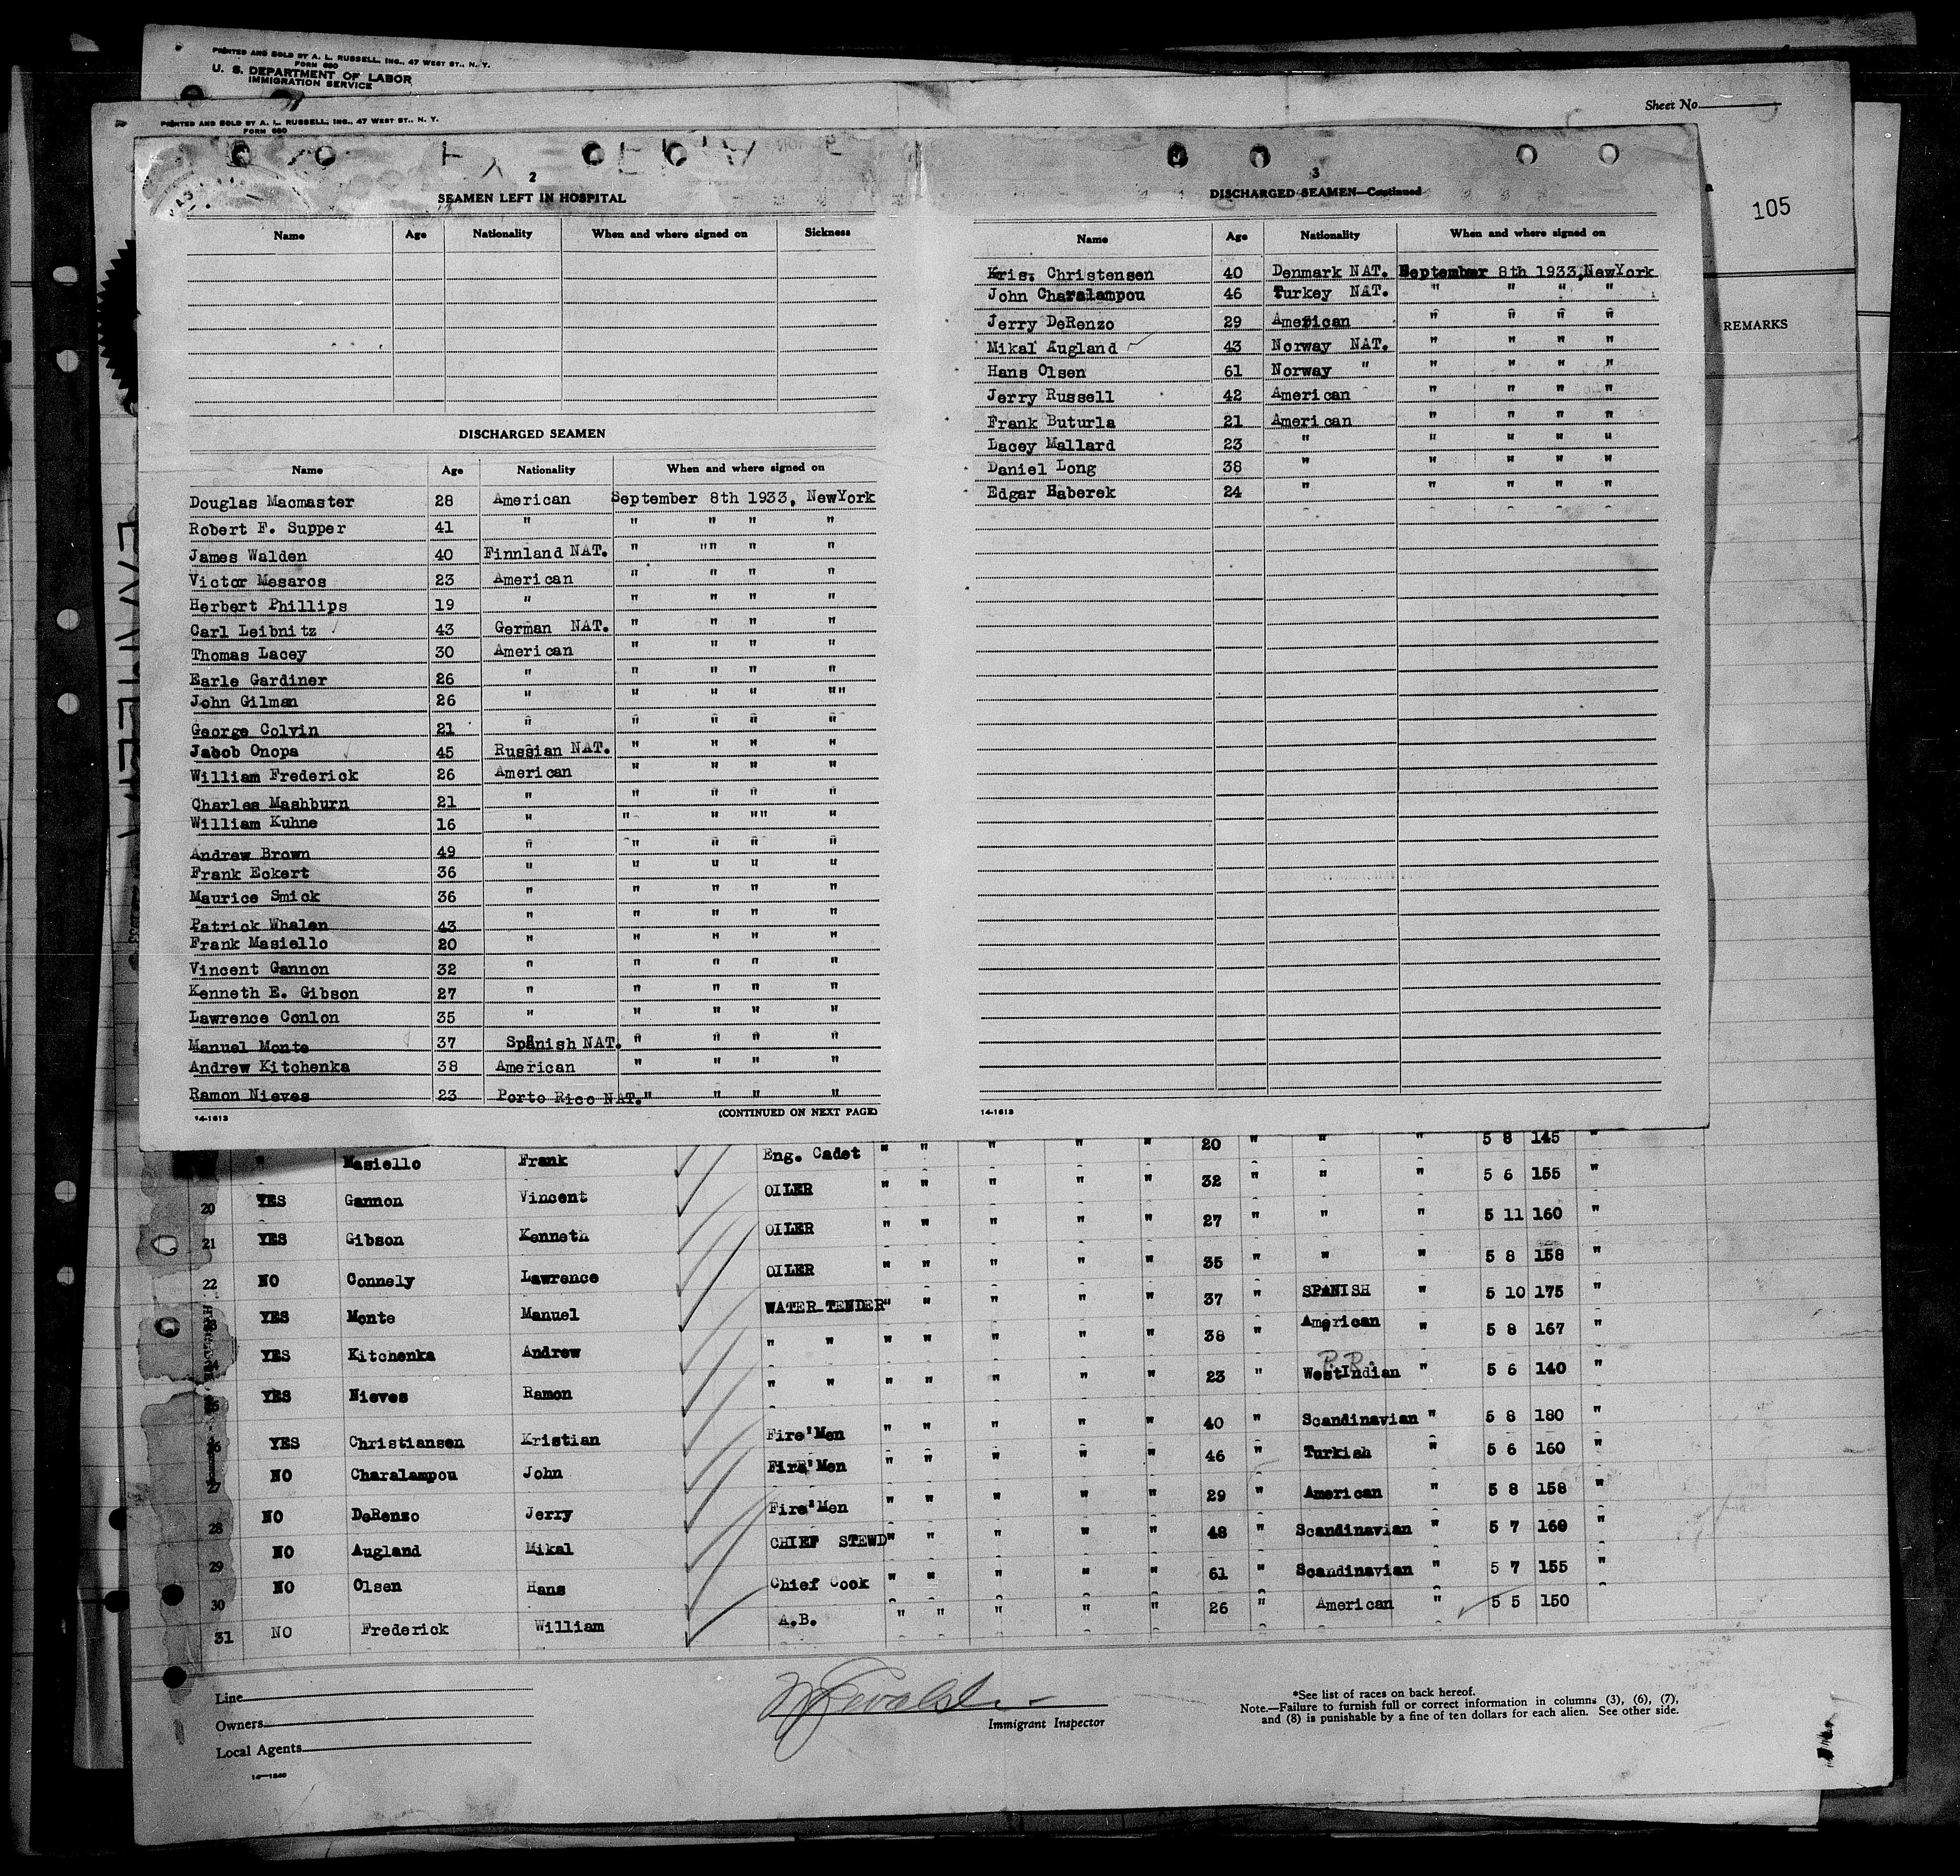 PRINTED AND SOLD BY A. L. RUSSELL, INC., 47 WEST ST., N. Y.
FORM 680
U. S. DEPARTMENT OF LABOR
IMMIGRATION SERVICE
Sheet No.
PRINTED AND SOLD BY A. L. RUSSELL, INC., 47 WEST ST., N. Y.
FORM 680
105
REMARKS
2
SEAMEN LEFT IN HOSPITAL
Name Age Nationality When and where signed on Sickness
DISCHARGED SEAMEN
Name Age Nationality When and where signed on
Douglas Macmaster 28 American September 8th 1933, NewYork
Robert F. Supper 41 " " " " "
James Walden 40 Finnland NAT. " "" " "
Victor Mesaros 23 American " " " "
Herbert Phillips 19 " " " " "
Carl Leibnitz 43 German NAT. " " " "
Thomas Lacey 30 American " " " "
Earle Gardiner 26 " " " " "
John Gilman 26 " " " " ""
George Colvin 21 " " " " "
Jacob Onopa 45 Russian NAT. " " " "
William Frederick 26 American " " " "
Charles Mashburn 21 " " " " "
William Kuhne 16 " " " "" "
Andrew Brown 49 " " " " "
Frank Eckert 36 " " " " "
Maurice Smick 36 " " " " "
Patrick Whalen 43 " " " " "
Frank Masiello 20 " " " " "
Vincent Gannon 32 " " " " "
Kenneth E. Gibson 27 " " " " "
Lawrence Conlon 35 " " " " "
Manuel Monte 37 Spanish NAT. " " " "
Andrew Kitchenka 38 American " " " "
Ramon Nieves 23 Porto Rico NAT." " " "
14-1613 (CONTINUED ON NEXT PAGE)
3
DISCHARGED SEAMEN—Continued
Name Age Nationality When and where signed on
Kris. Christensen 40 Denmark NAT. September 8th 1933,NewYork
John Charalampou 46 Turkey NAT. " " " "
Jerry DeRenzo 29 American " " " "
Mikal Augland 43 Norway NAT. " " " "
Hans Olsen 61 Norway " " " " "
Jerry Russell 42 American " " " "
Frank Buturla 21 American " " " "
Lacey Mallard 23 " " " " "
Daniel Long 38 " " " " "
Edgar Haberek 24 " " " " "
14-1613
" Masiello Frank Eng. Cadet " " " " " 20 " " " 5 8 145 "
20 YES Gannon Vincent OILER " " " " " 32 " " " 5 6 155 "
21 YES Gibson Kenneth OILER " " " " " 27 " " " 5 11 160 "
22 NO Connely Lawrence OILER " " " " " 35 " " " 5 8 158 "
YES Monte Manuel WATER TENDER" " " " " 37 " SPANISH " 5 10 175 "
YES Kitchenka Andrew " " " " " " " 38 " American " 5 8 167 "
P.R.
YES Nieves Ramon " " " " " " " 23 " WestIndian " 5 6 140 "
26 YES Christiansen Kristian Fire'Men " " " " " 40 " Scandinavian " 5 8 180 "
27 NO Charalampou John Fire'Men " " " " " 46 " Turkish " 5 6 160 "
28 NO DeRenzo Jerry Fire'Men " " " " " 29 " American " 5 8 158 "
29 NO Augland Mikal CHIEF STEWD" " " " " 48 " Scandinavian " 5 7 160 "
30 NO Olsen Hans Chief Cook " " " " " 61 " Scandinavian " 5 7 155 "
31 NO Frederick William A.B. " " " " " 26 " American " 5 5 150
Line
Owners
Local Agents
Immigrant Inspector
*See list of races on back hereof.
Note.—Failure to furnish full or correct information in columns (3), (6), (7),
and (8) is punishable by a fine of ten dollars for each alien. See other side.
14—1240